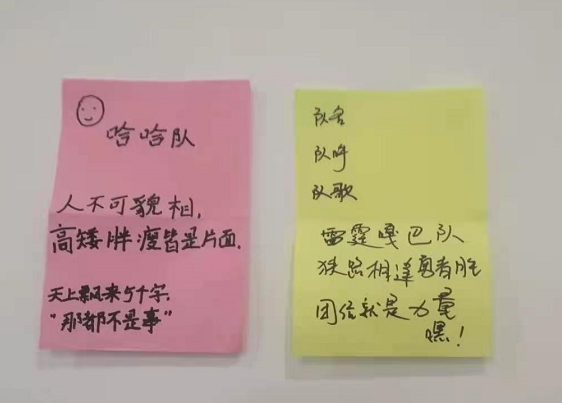 哈哈队
人不可貌相,
高矮胖瘦皆是片面.
天上飘来5个字,
"那都不是事"
队名
队呼
队歌
雷霆嘎巴队
狭路相逢勇者胜
团结就是力量
嘿!